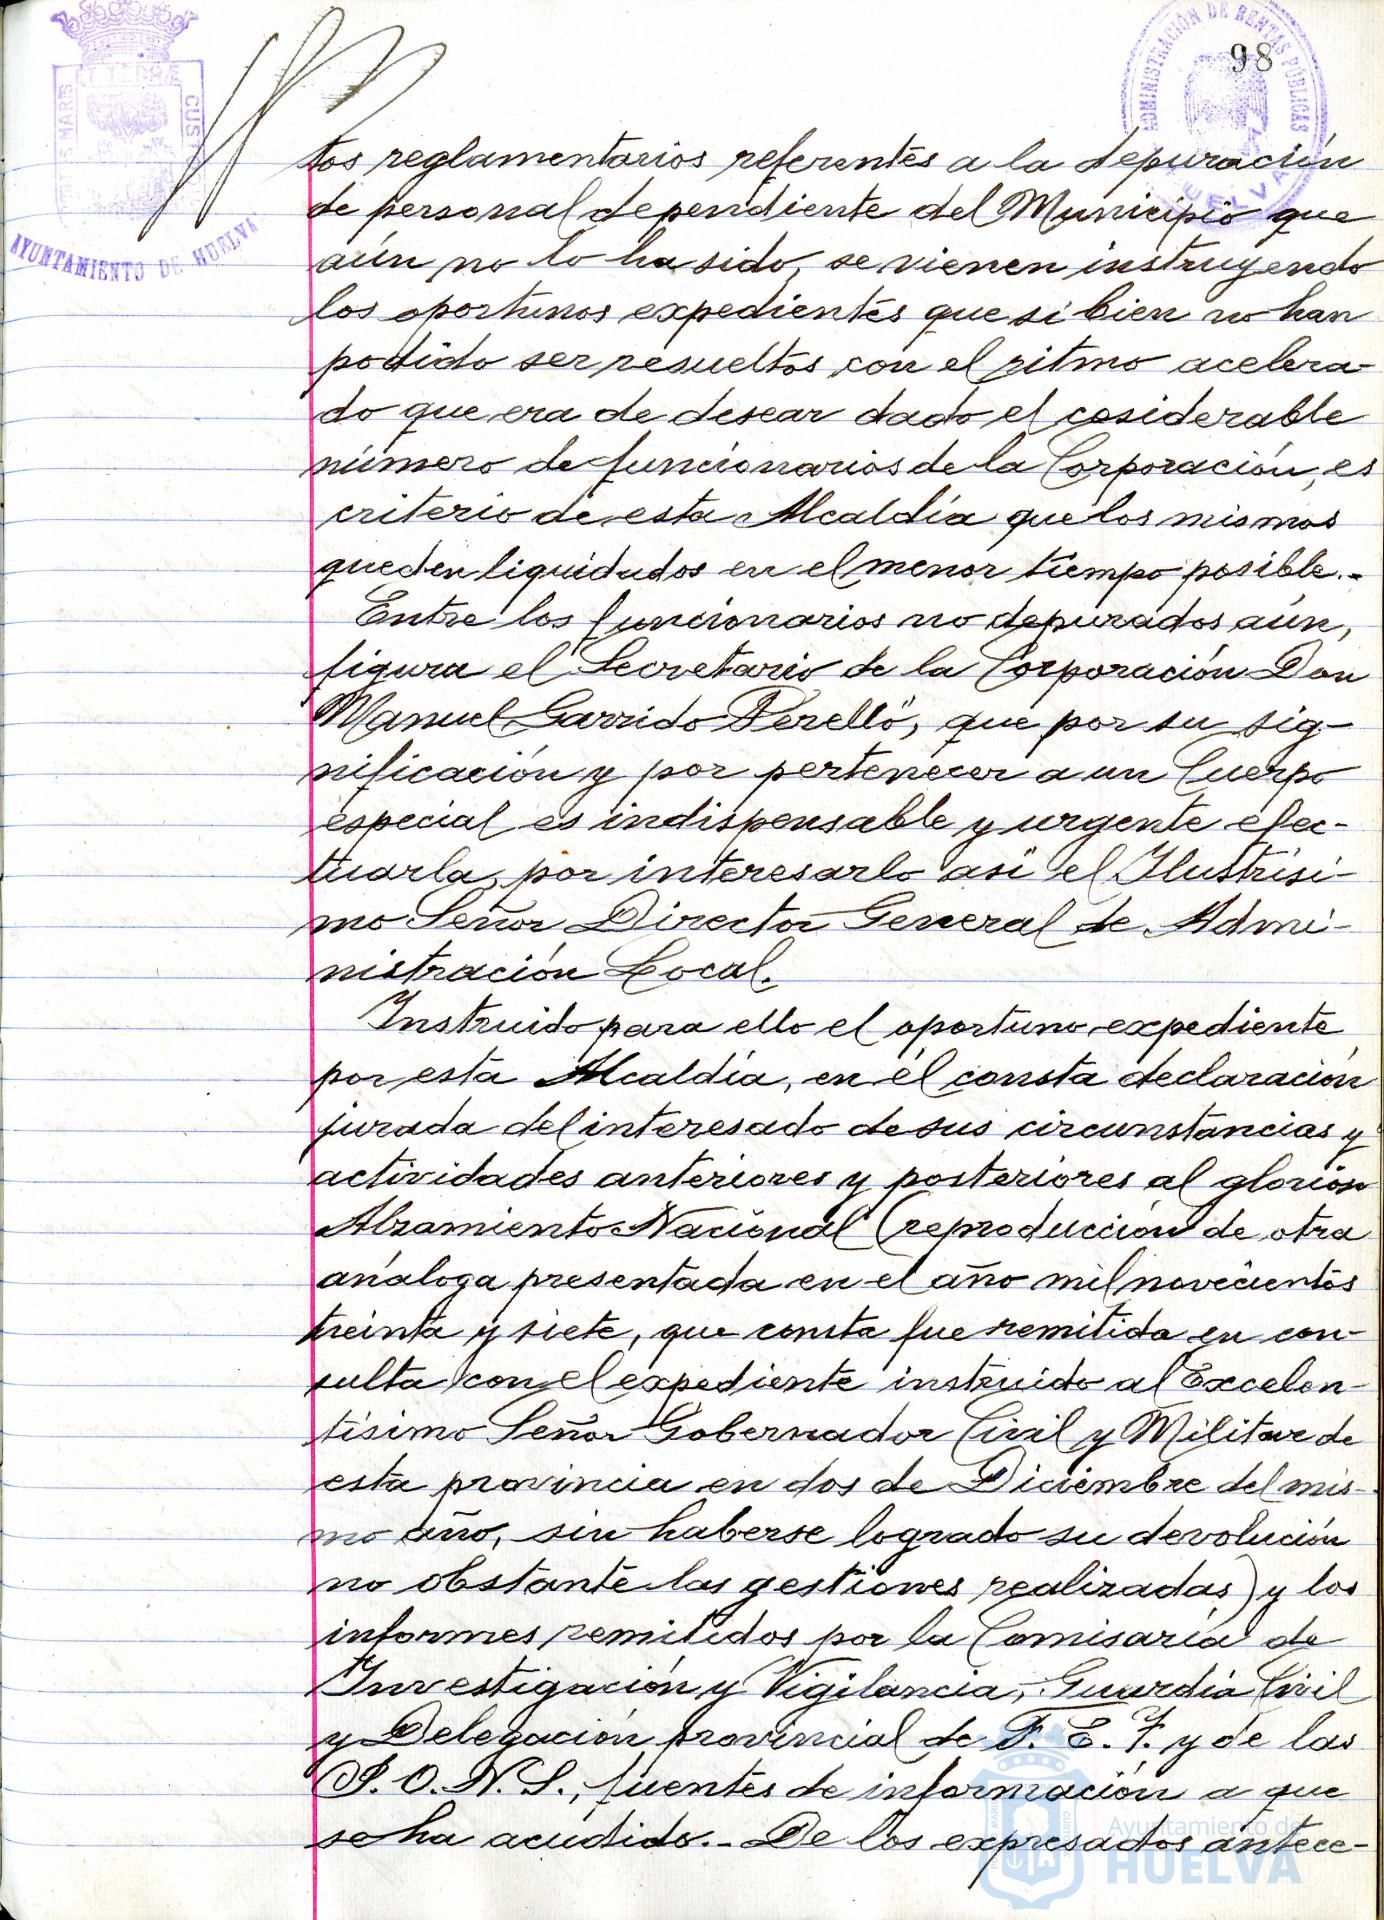 98
ET TERRÆ
S MARIS
CUS
AYUNTAMIENTO DE HUELVA
ADMINISTRACIÓN DE RENTAS PÚBLICAS
HUELVA
tos reglamentarios referentes a la depuración
de personal dependiente del Municipio que
aún no lo ha sido, se vienen instruyendo
los oportunos expedientes que si bien no han
podido ser resueltos con el ritmo acelera-
do que era de desear dado el cosiderable
número de funcionarios de la Corporación, es
criterio de esta Alcaldía que los mismos
queden liquidados en el menor tiempo posible.-
Entre los funcionarios no depurados aún,
figura el Secretario de la Corporación Don
Manuel Garrido Perelló, que por su sig-
nificación y por pertenecer a un Cuerpo
especial es indispensable y urgente efec-
tuarla, por interesarlo así el Ilustrísi-
mo Señor Director General de Admi-
nistración Local.
Instruido para ello el oportuno expediente
por esta Alcaldía, en él consta declaración
jurada del interesado de sus circunstancias y
actividades anteriores y posteriores al glorioso
Alzamiento Nacional (reproducción de otra
análoga presentada en el año mil novecientos
treinta y siete, que consta fue remitida en con-
sulta con el expediente instruido al Excelen-
tísimo Señor Gobernador Civil y Militar de
esta provincia en dos de Diciembre del mis-
mo año, sin haberse logrado su devolución
no obstante las gestiones realizadas) y los
informes remitidos por la Comisaría de
Investigación y Vigilancia, Guardia Civil
y Delegación provincial de F. E. T. y de las
J. O. N. S., fuentes de información a que
se ha acudido.- De los expresados antece-
Ayuntamiento de
HUELVA